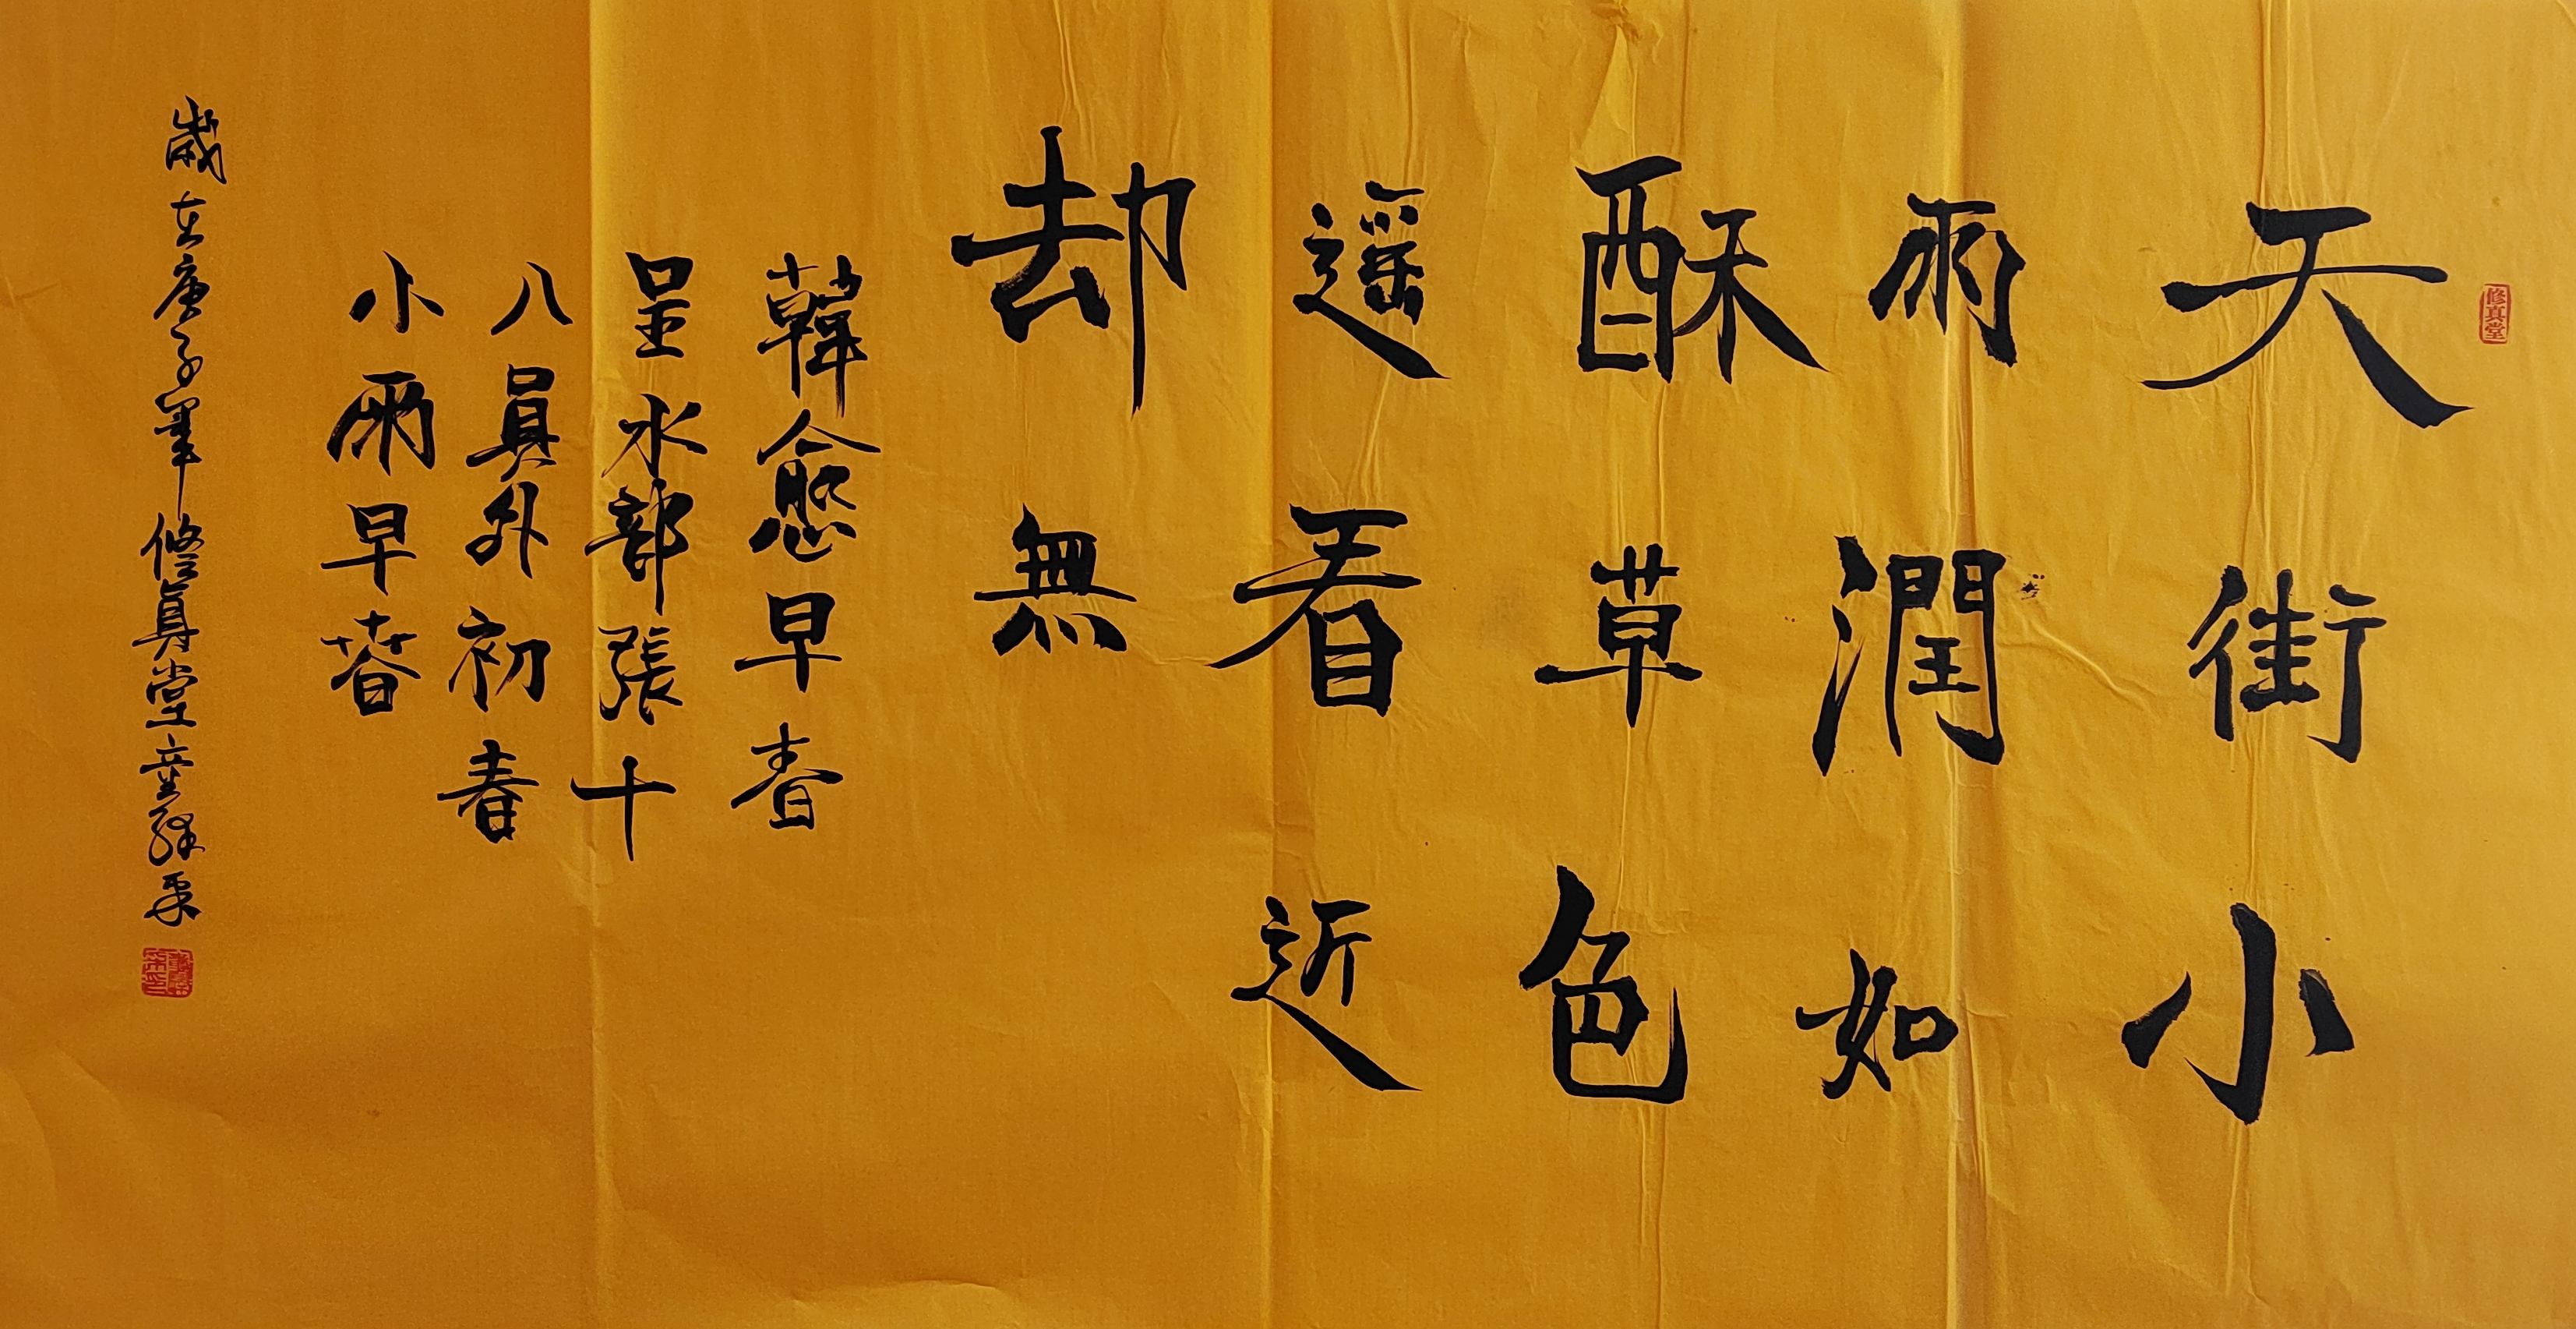 修真堂
天街小
雨潤如
酥草色
遥看近
却無
韓愈早春
呈水部張十
八員外初春
小雨早春
歲在庚子筆修真堂童